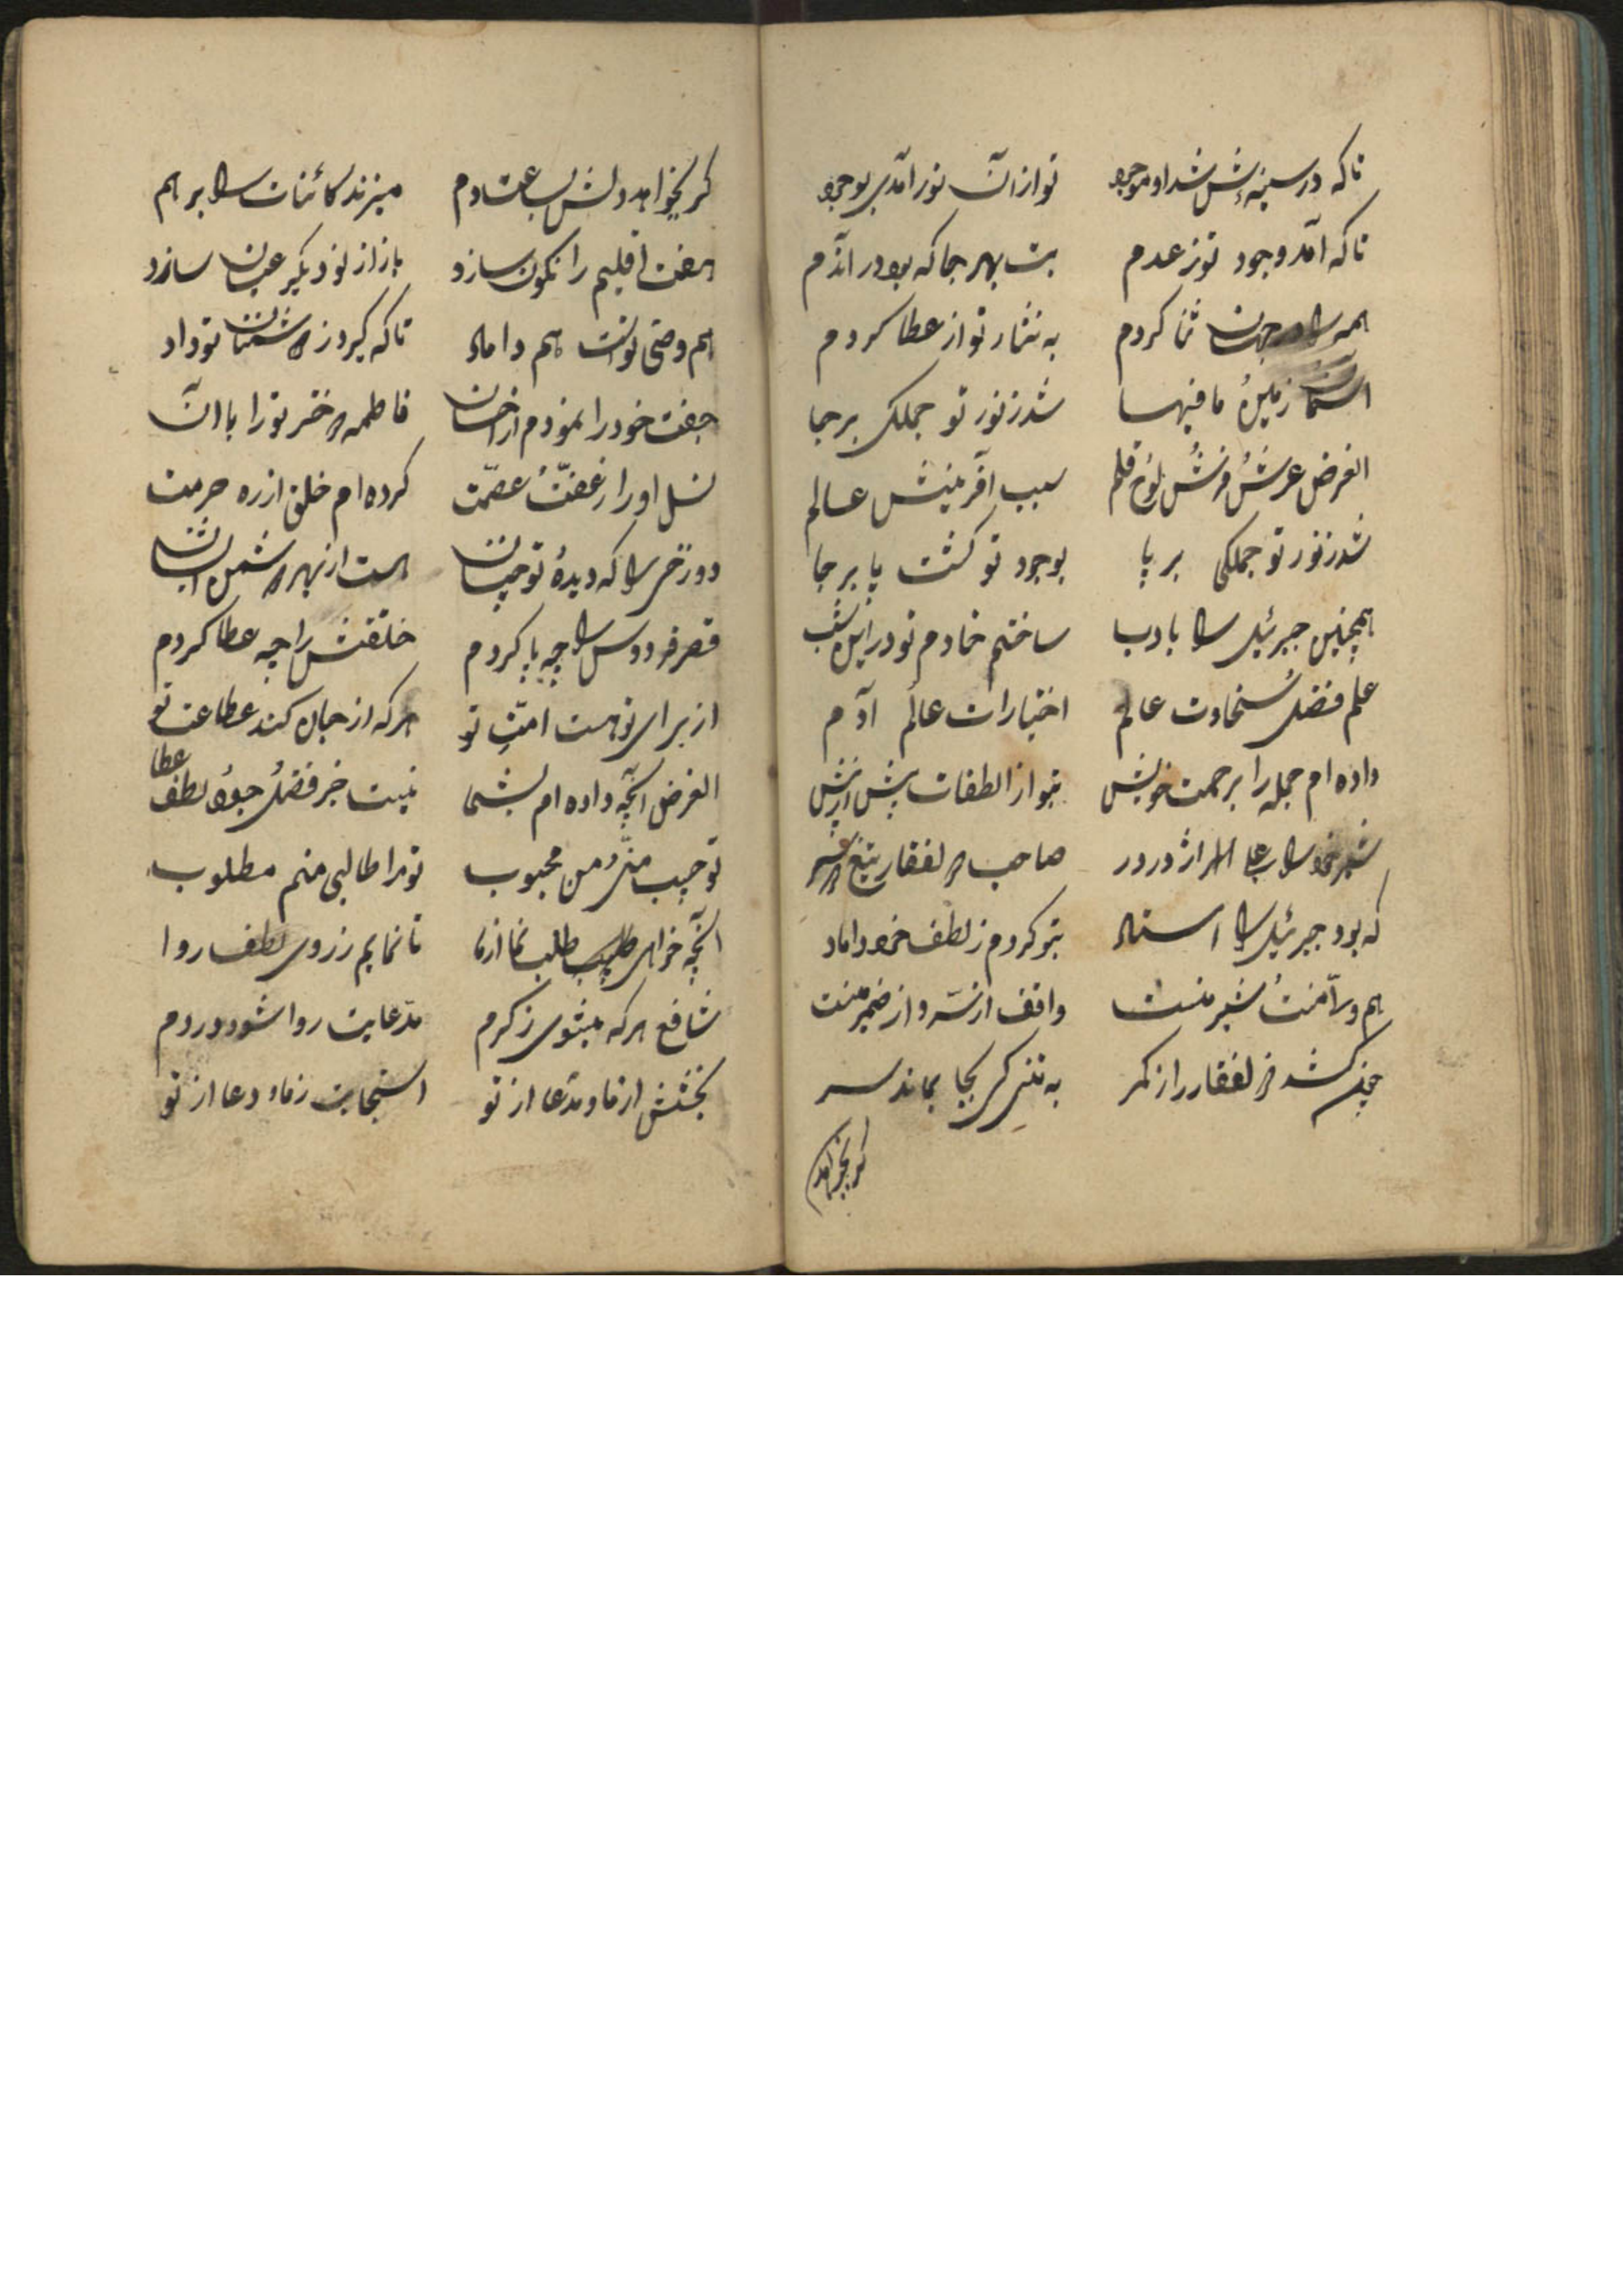 تا که در سینه‌اش شد او موجود تو از آن نور آمدی بوجود
تا که آمد وجود تو ز عدم بت بهر جا که بود در آندم
همه را در جهان ثنا کردم به نثار تو از عطا کردم
آسمان زمین و ما فیها شد ز نور تو جملکی برجا
الغرض عرش و فرش و لوح و قلم سبب آفرینش عالم
شد ز نور تو جملکی بر پا بوجود تو کشت پا بر جا
همچنین جبرئیل را با ادب ساختم خادم تو در این شب
علم و فضل و سخاوت عالم اختیارات عالم و آدم
داده‌ام جمله را برحمت خویش بتو از الطفات پیش از پیش
صاحب ذوالفقار تیغ دو سر
که بود جبرئیل را استاد بتو کردم ز لطف خود داماد
هم ولا منت و شیر منست واقف از سر و از ضمیر منست
چون کشد ذوالفقار را از کمر به تن کس کجا بماند سر
کر نخواهد
کر نخواهد دلش بساعت و دم میزند کائنات را بر هم
هفت اقلیم را نکون سازد باز از نو دیکر عیان سازد
هم وصی تو است هم داماد تا که کیرد ز دشمنان تو داد
جفت خود را نمودم از احسان فاطمه دختر تو را با آن
نسل او را ز عفت و عصمت کرده‌ام خلق از ره حرمت
دوزخی را که دیدهٔ تو چنان هست از بهر دشمن ایشان
قصر فردوس را چه پا کردم خلقتش را چه عطا کردم
از برای تو هست امت تو هر که از جان کند عطاعت تو
الغرض آنچه داده‌ام بشما نیست جز فضل و جود و لطف و عطا
تو حبیب منی و من محبوب تو مرا طالبی منم مطلوب
آنچه خواهی طلب طلب نما از ما تا نمایم ز روی لطف روا
شافع هر که میشوی ز کرم مدعایت روا شود در دم
بخشش از ما و مدعا از تو استجابت ز ما و دعا از تو